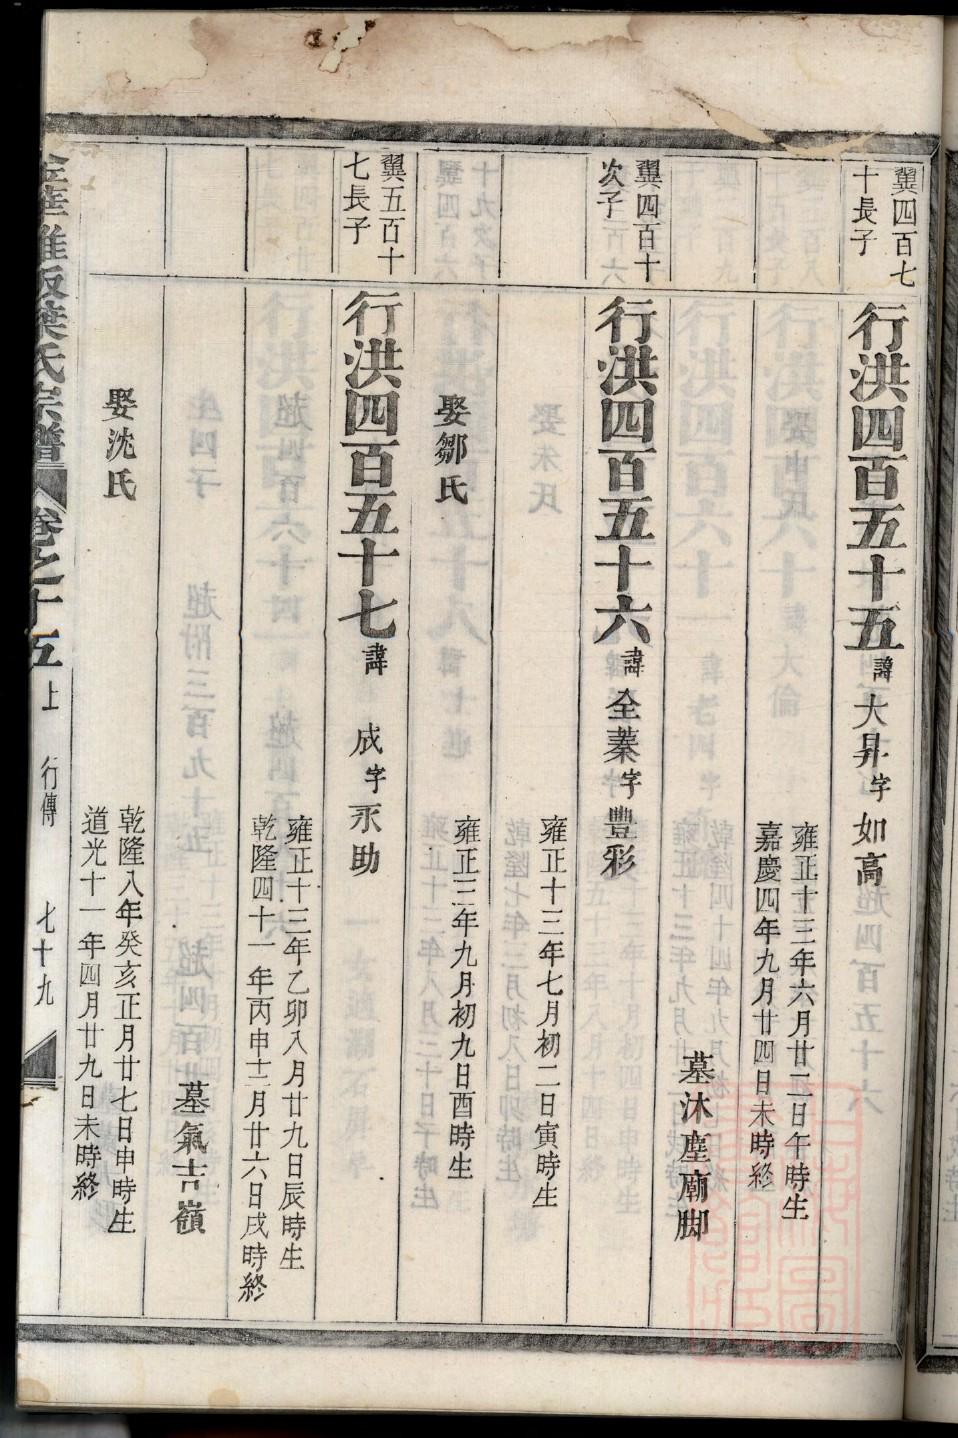 翼四百七
十長子
行洪四百五十五諱大昇字如高
雍正十三年六月廿二日午時生
嘉慶四年九月廿四日未時終
墓沐塵廟脚
翼四百十
次子
行洪四百五十六諱全蓁字豐彩
雍正十三年七月初二日寅時生
娶鄒氏
雍正三年九月初九日酉時生
翼五百十
七長子
行洪四百五十七諱成字永助
雍正十三年乙卯八月廿九日辰時生
乾隆四十一年丙申十二月廿六日戌時終
墓氣古嶺
娶沈氏
乾隆八年癸亥正月廿七日申時生
道光十一年四月廿九日未時終
金華雅畈葉氏宗譜 卷之十五 上 行傳 七十九